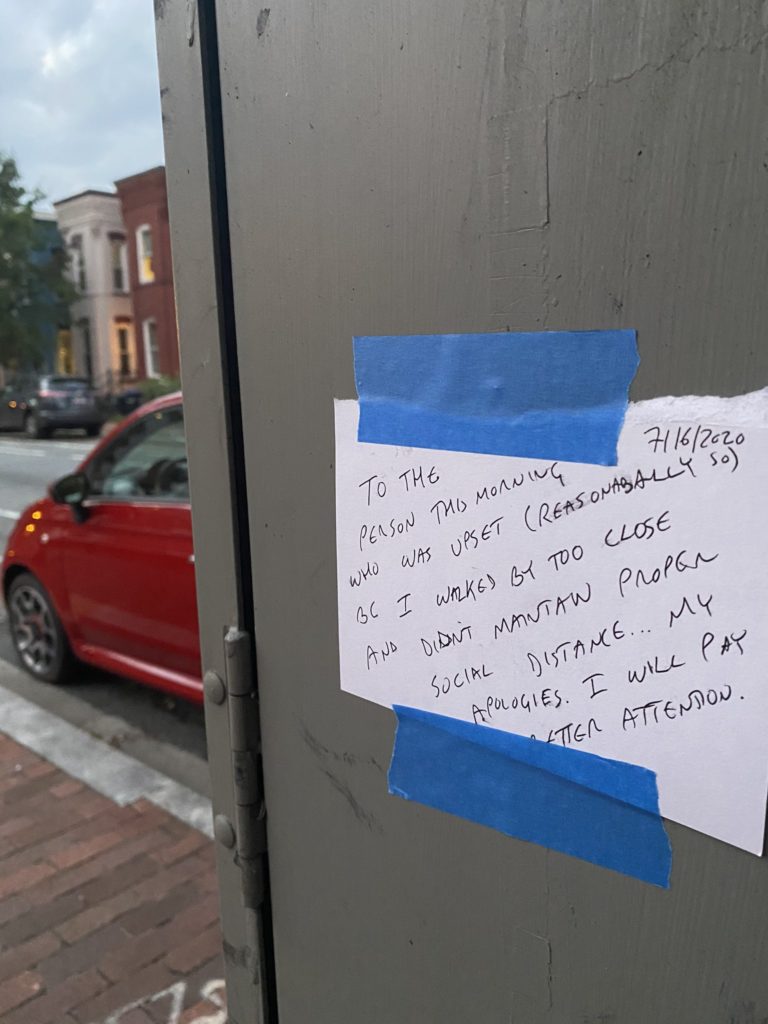 7/16/2020
TO THE
PERSON THIS MORNING
WHO WAS UPSET (REASONABALLY SO)
BC I WALKED BY TOO CLOSE
AND DIDN'T MANTAIN PROPER
SOCIAL DISTANCE... MY
APOLOGIES. I WILL PAY
BETTER ATTENTION.